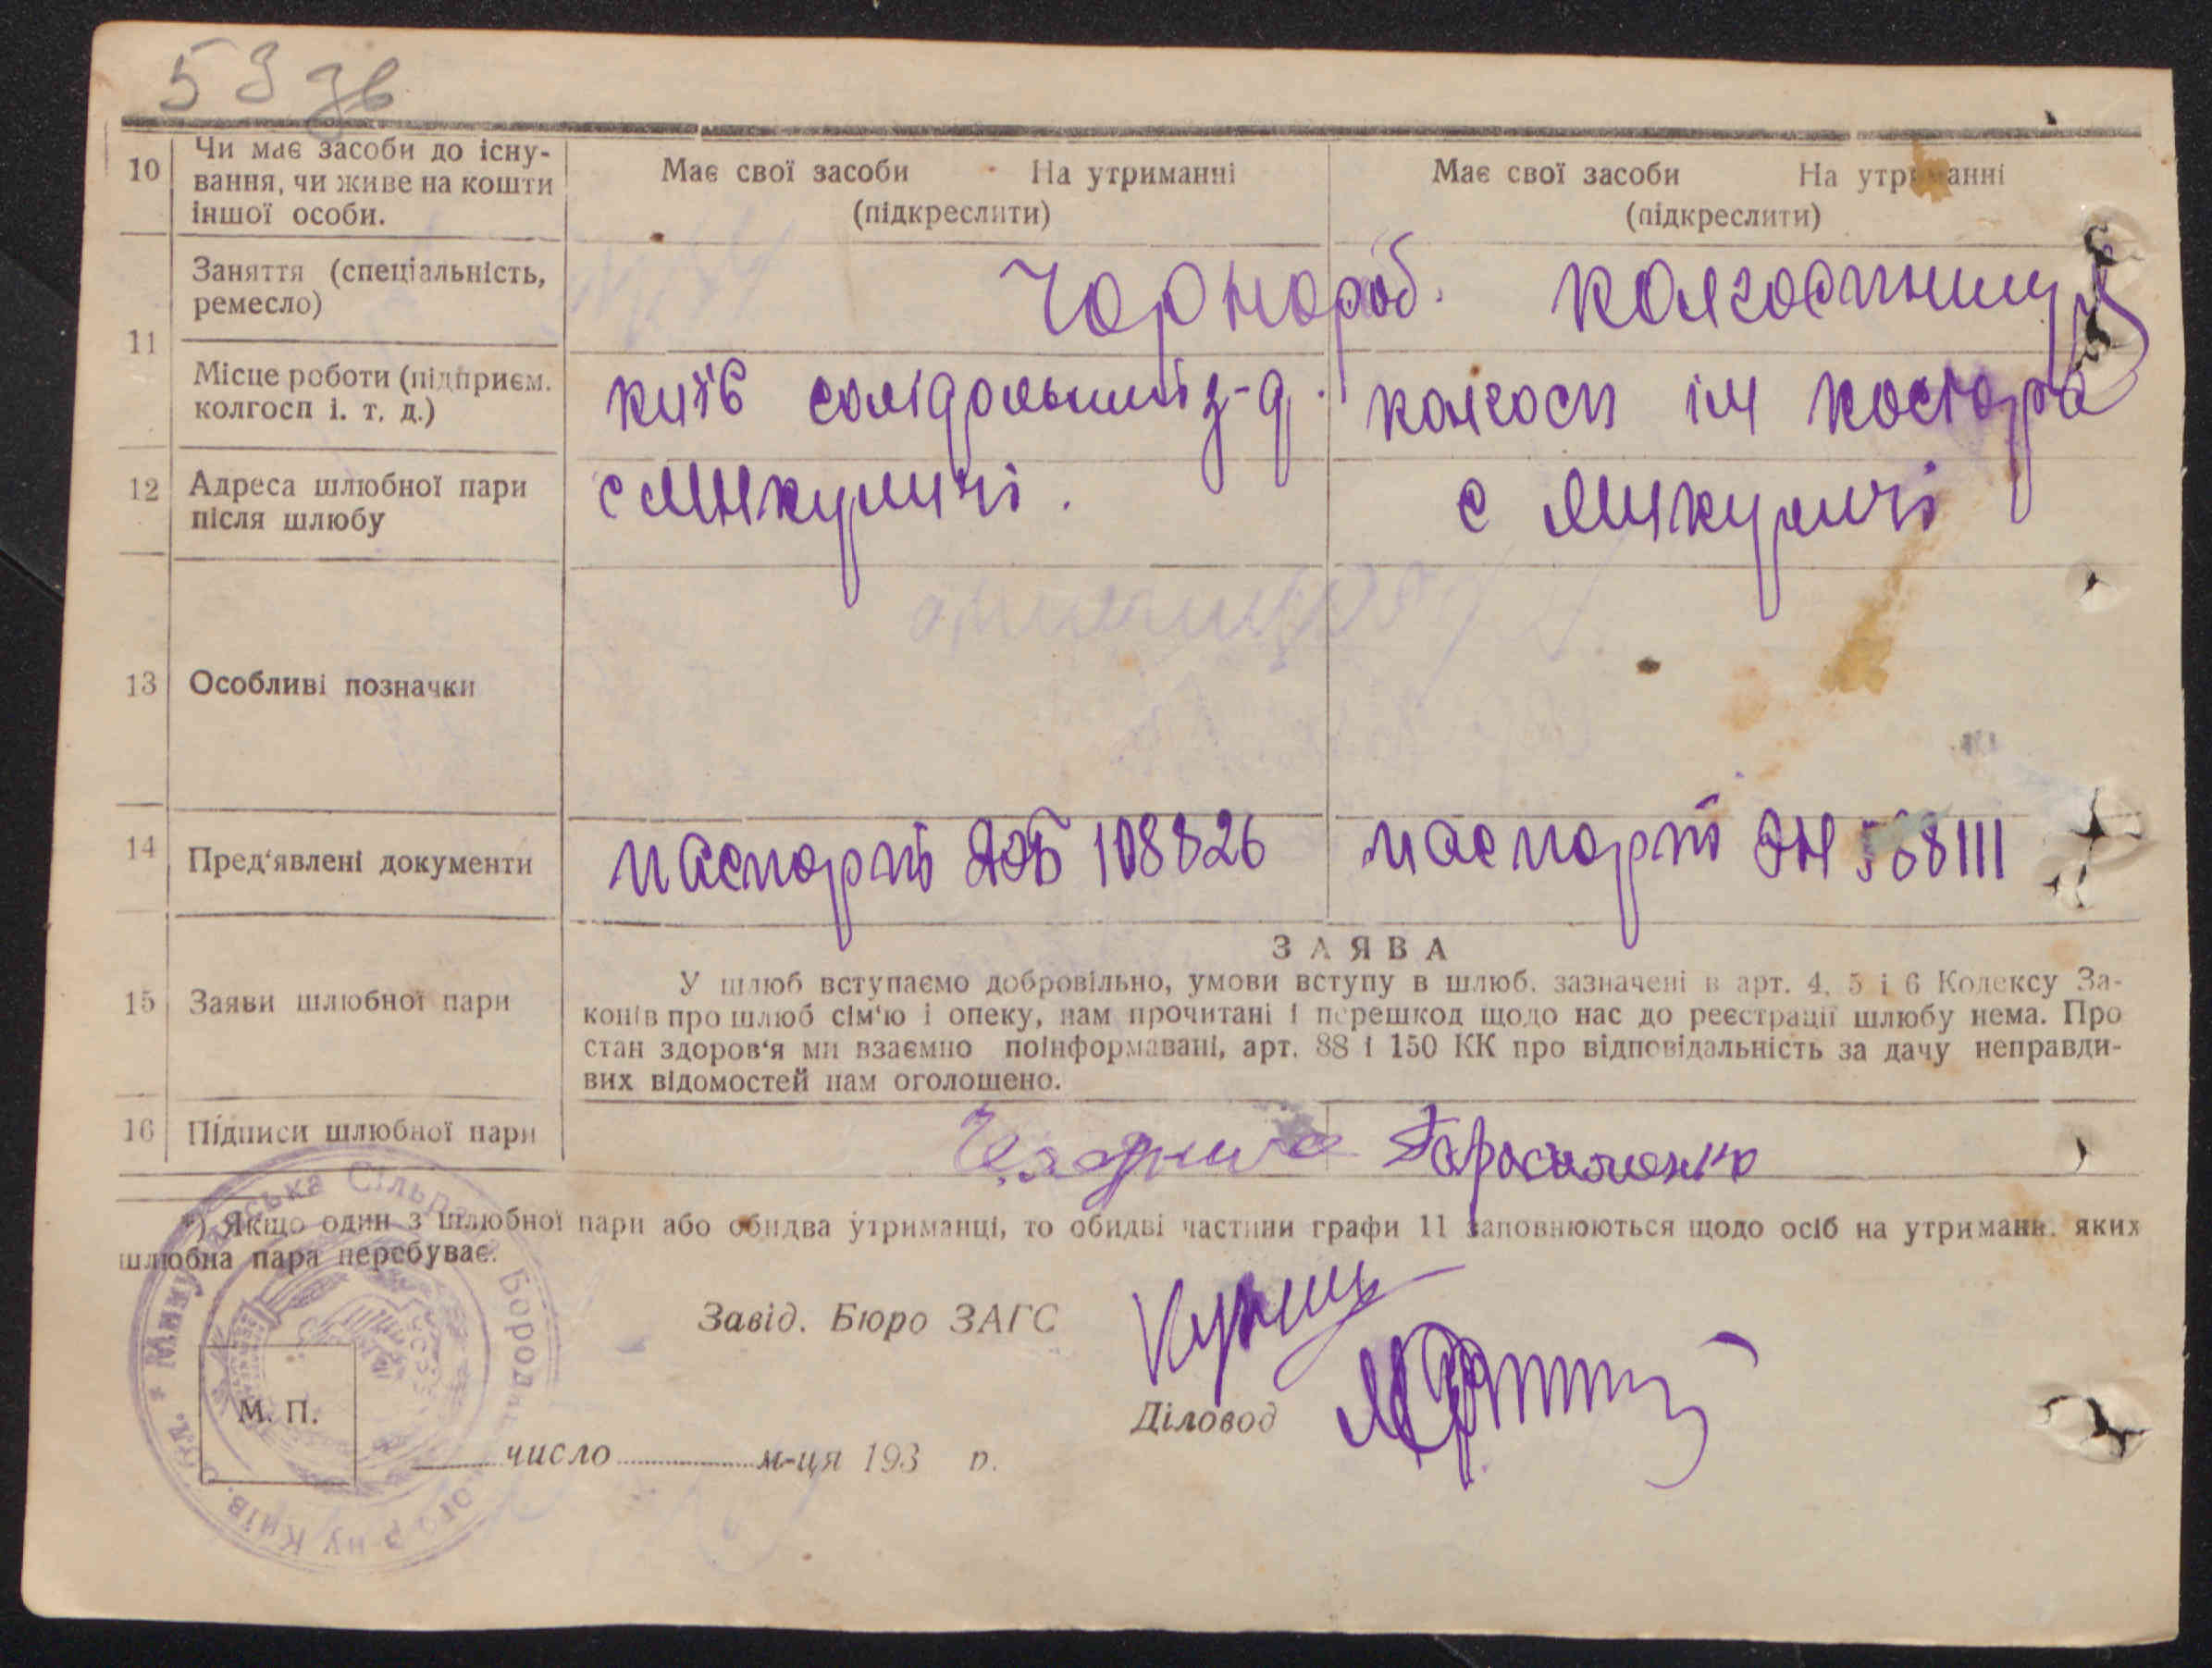 53 зв
10 Чи має засоби до існу-
вання, чи живе на кошти
іншої особи.
Має свої засоби На утриманні
(підкреслити)
Має свої засоби На утриманні
(підкреслити)
11
Заняття (спеціальність,
ремесло)
Чорнороб. колгоспниця
Місце роботи (підприєм.
колгосп і. т. д.)
київ солідольний з-д.
колгосп ім косіора
12 Адреса шлюбної пари
після шлюбу
с Микуличі.
с Микуличі
13 Особливі позначки
14 Пред'явлені документи
паспорт 108826
паспорт 568111
15 Заяви шлюбної пари
ЗАЯВА
У шлюб вступаємо добровільно, умови вступу в шлюб, зазначені в арт. 4, 5 і 6 Кодексу За-
конів про шлюб сім'ю і опеку, нам прочитані і перешкод щодо нас до реєстрації шлюбу нема. Про
стан здоров'я ми взаємно поінформавані, арт. 88 і 150 КК про відповідальність за дачу неправди-
вих відомостей нам оголошено.
16 Підписи шлюбної пари
Гарасименко
*) Якщо один з шлюбної пари або обидва утриманці, то обидві частини графи 11 заповнюються щодо осіб на утриманн. яких
шлюбна пара перебуває.
Завід. Бюро ЗАГС
Діловод
М. П.
число м-ця 193 р.
Сільрада Бородянського р-ну Київ. обл.